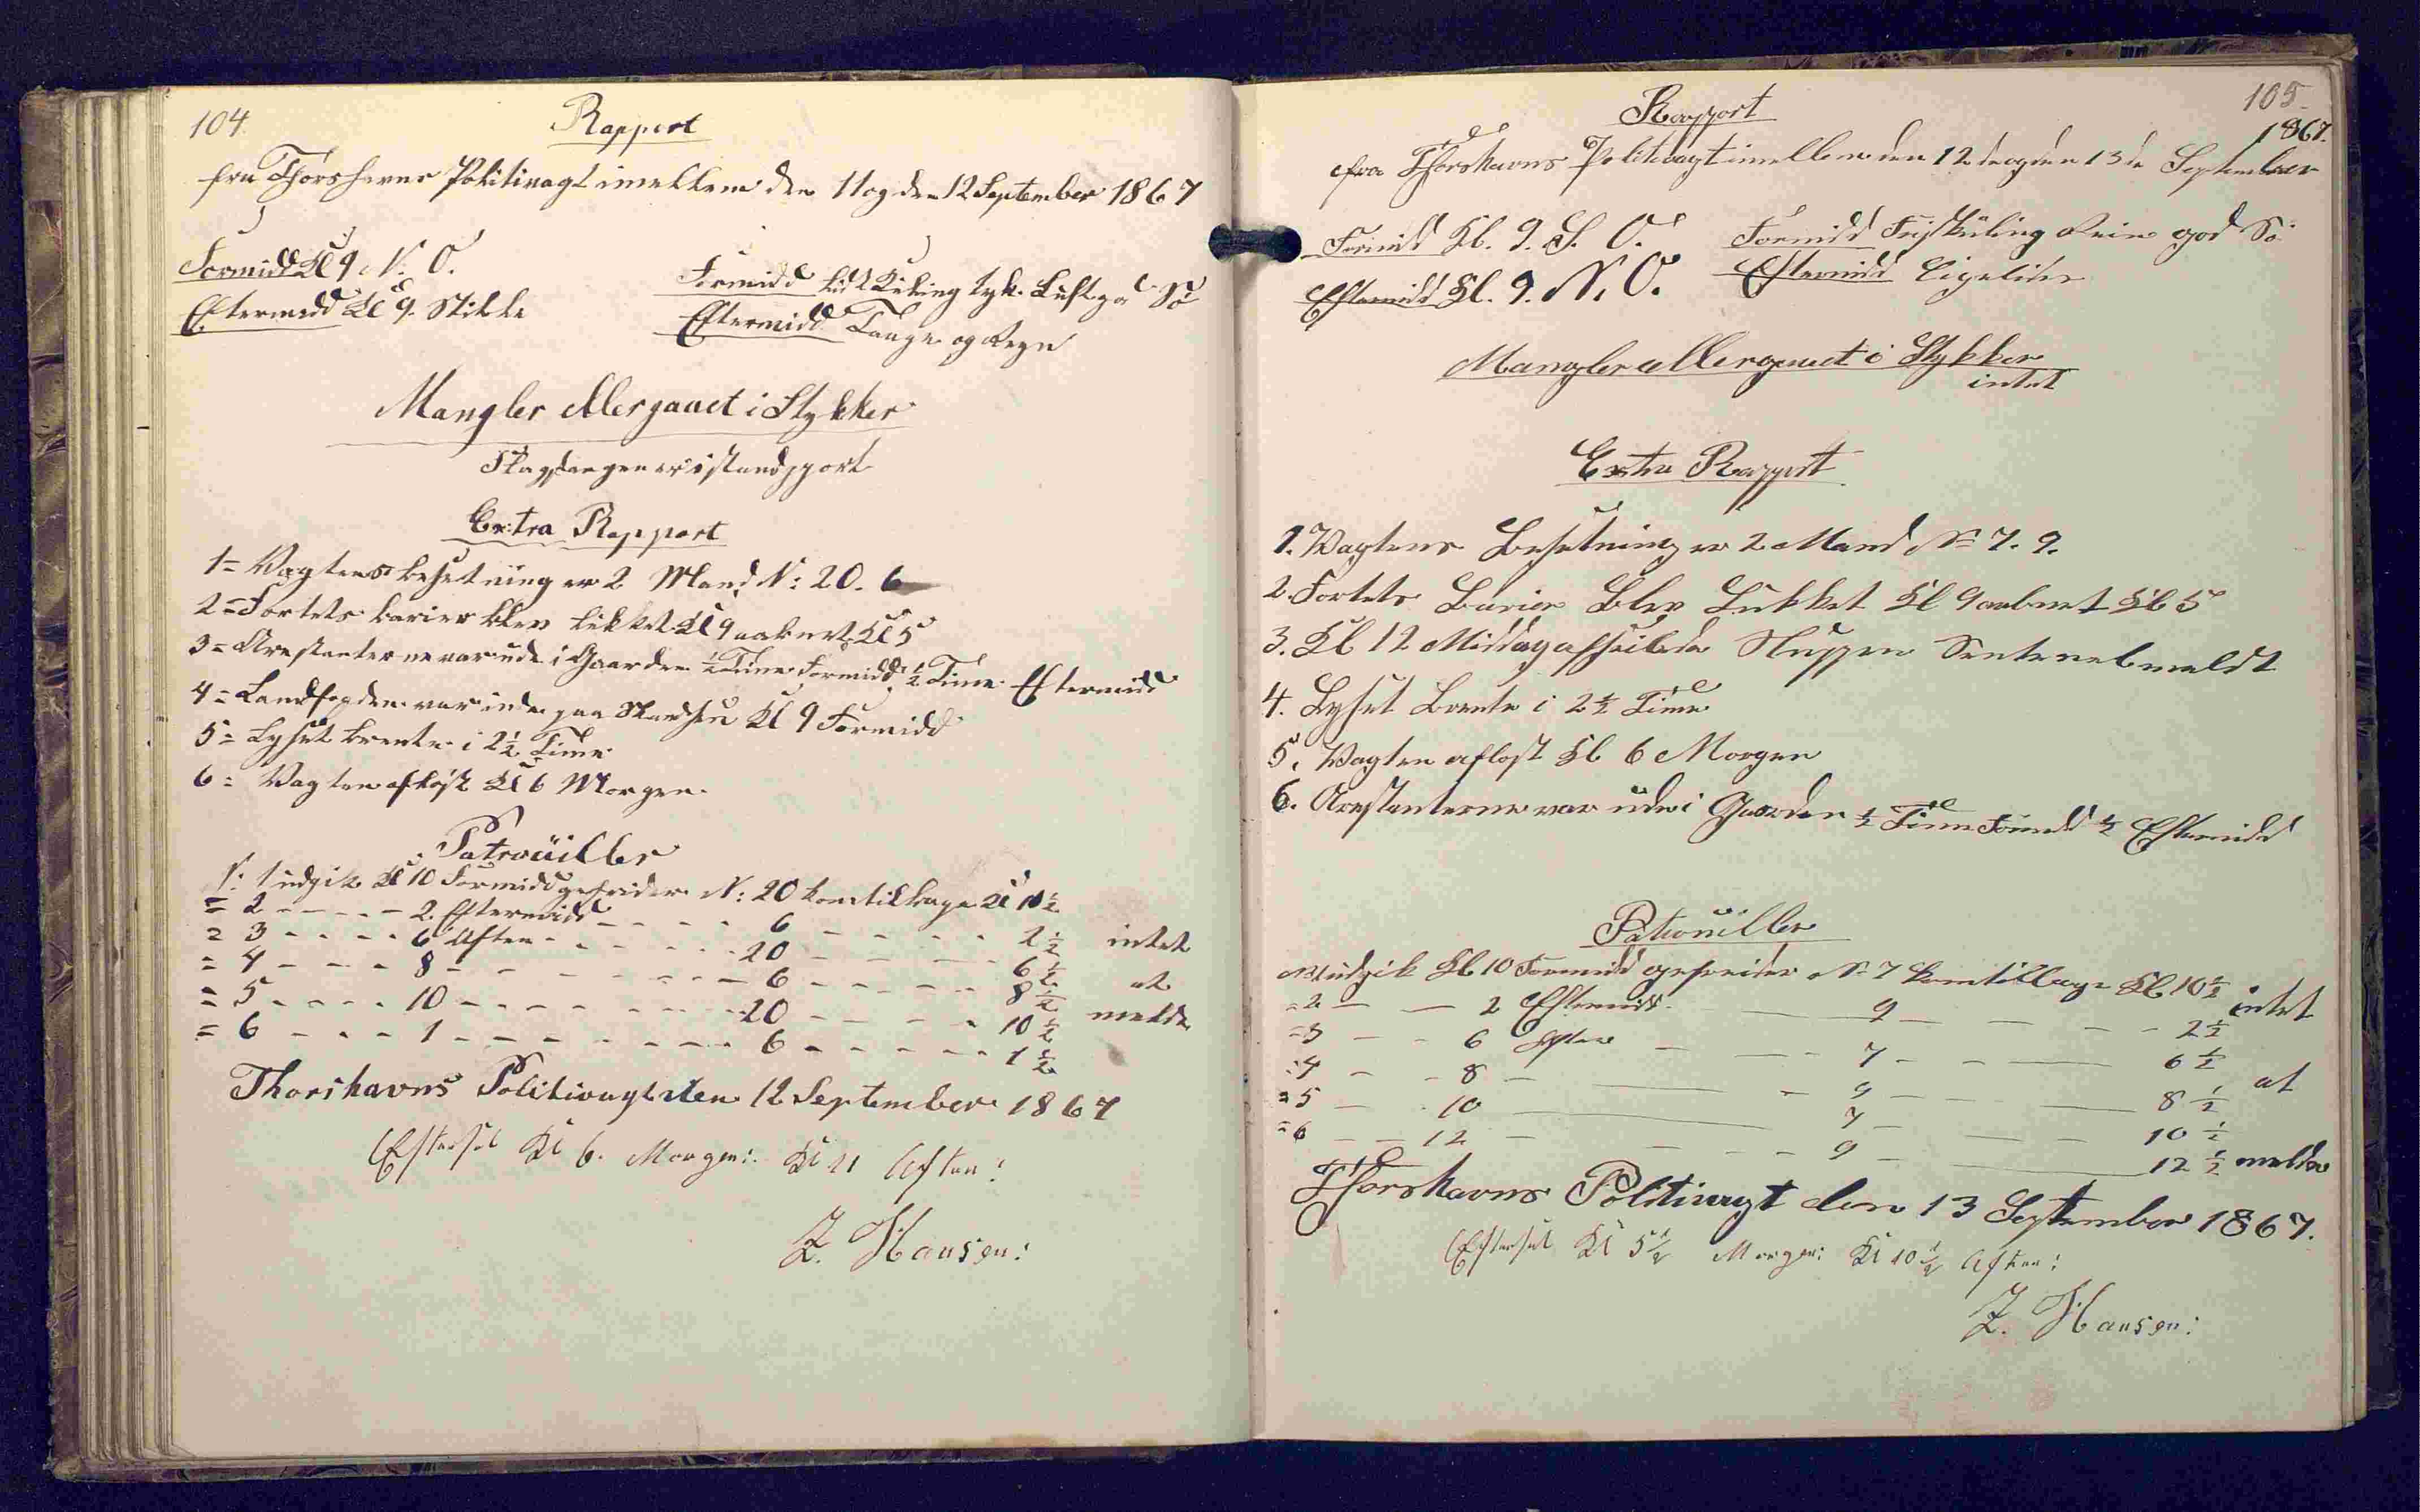 104
Rapport
fra Thorshavns Politivagt imellem den 11 og den 12 September 1867
Formidd Kl 9 N. O.
Eftermidd Kl 9. Stille
Formidd lidt Kuling tyk Luft god Sö
Eftermidd Taage og Regn
Mangler eller gaaet i Stykker
Flagstangen er istandgjort
Extra Rapport
1 = Vagtens besetning er 2 Mand N: 20. 6
2 = Fortets barier blev lukket Kl 9 aabnet Kl 5
3 = Arestanterne var ude i Gaarden ½ Time Formidd ½ Time Eftermidd
4 = Landfogden var inde paa Skandsen Kl 9 Formidd
5 = Lyset brente i 2½ Time
6 = Vagten aflöst Kl 6 Morgen.
Patrouiller
N: 1 udgik Kl 10 Formidd gefreider N: 20 kom tilbage Kl 10½
= 2 - - - - - 2. Eftermidd - - - - 6 - - - - - 2½ intet
= 3 - - - - 6 Aften - - - - - 20 - - - - - 6½
= 4 - - - - 8 - - - - - - - 6 - - - - - 8½ at
= 5 - - - - 10 - - - - - - - 20 - - - - - 10½ melde
= 6 - - - - 1 - - - - - - - 6 - - - - - 1½
Thorshavns Politivagt den 12 September 1867
Eftersét Kl 6. Morgen: Kl 11 Aften:
Z. Hansen:
105.
Rapport
1867.
fra Thorshavns Politivagt imellem den 12 de og den 13 de September
Formidd Kl. 9. S. O.
Eftermidd Kl. 9. N. O.
Formidd Friskuling Rein god Sö
Eftermidd Ligeledes
Mangler eller gaaet i Stykker
intet
Extra Rapport
1. Wagtens Besetning er 2 Mand No 7. 9.
2. Fortets Barier Blev Lukket Kl 9 aabnet Kl 5
3. Kl 12 Middag afseilede Sluppen Sentenel
4. Lyset Brente i 2½ Time
5. Wagten aflöst Kl 6 Morgen
6. Arestanterne var ude i Gaarden ½ Time Formidd ½ Eftermidd
Patrouiller
No 1 udgik Kl 10 Formidd gefreider No 7 kom tilbage Kl 10½ intet
= 2 — — 2 Eftermidd — 9 — — — 2½
= 3 — - 6 Aften — — - 7 - - — 6½
= 4 - - 8 — — - 9 - - — 8½ at
= 5 — 10 — 7 — — 10½
= 6 — — 12 — - - - 9 — 12½ melde
Thorshavns Politivagt den 13 September 1867.
Eftersét Kl 5½ Morgen: Kl 10½ Aften:
Z. Hansen: